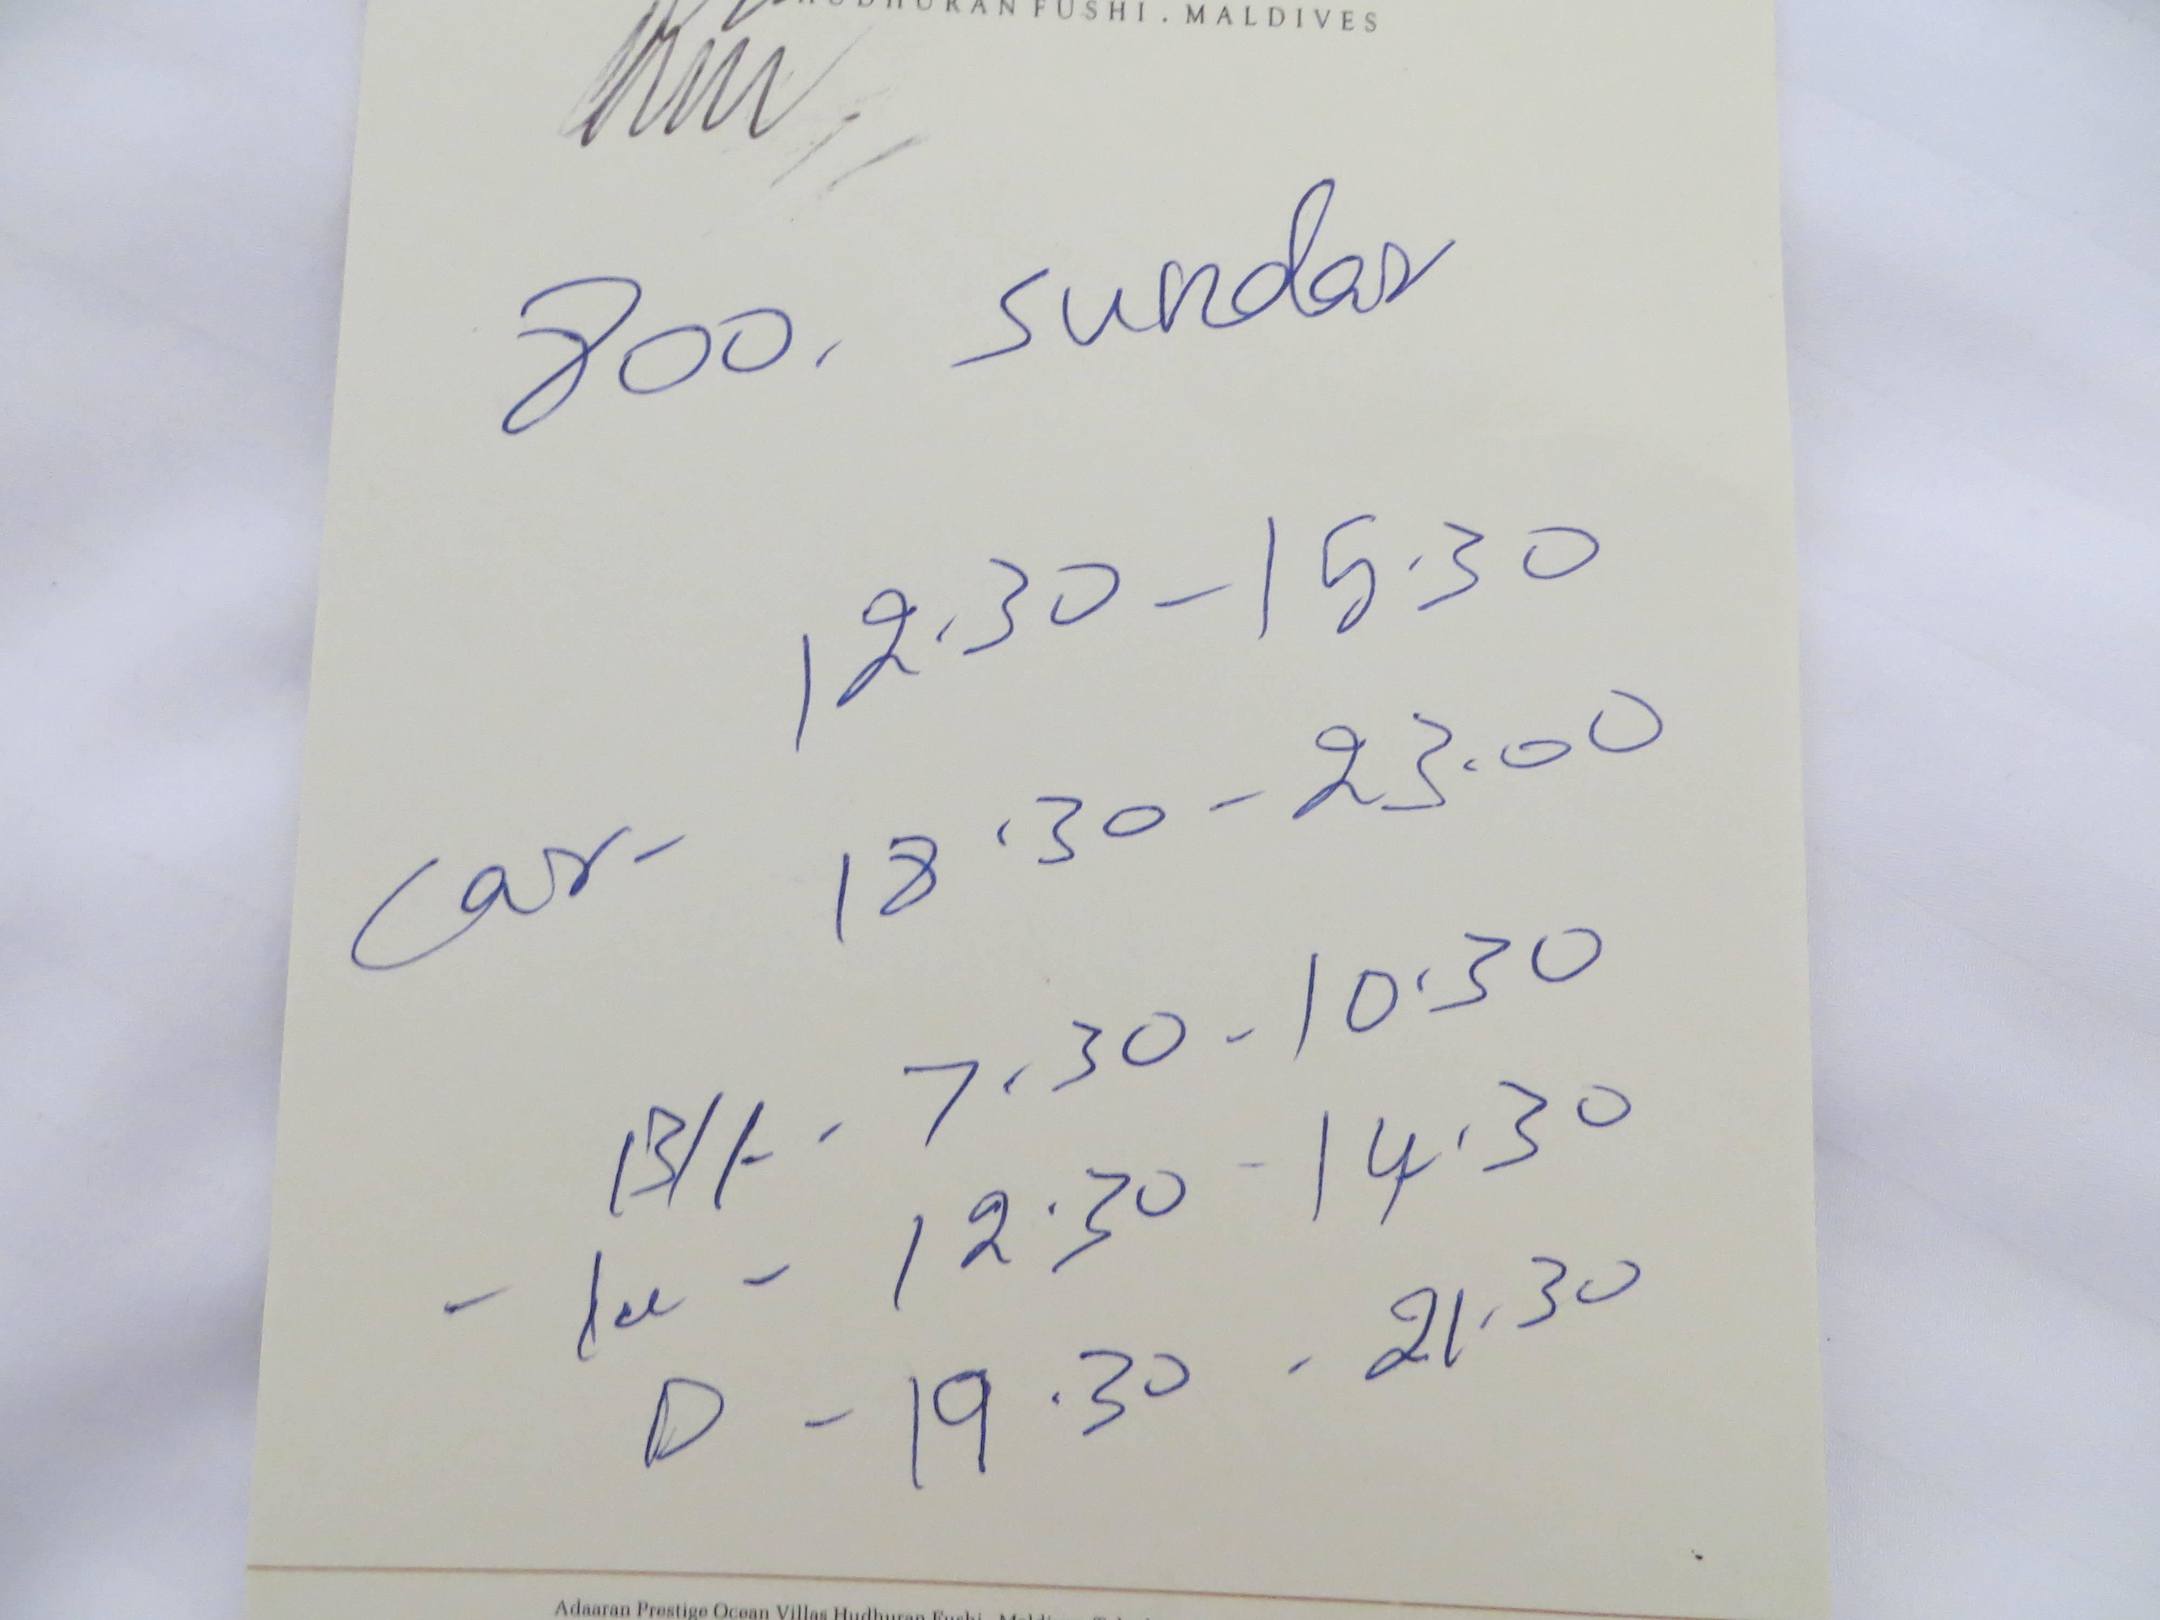 HUDHURAN FUSHI . MALDIVES
800, sundar
12.30 - 15.30
car - 18.30 - 23.00
B/f - 7.30 - 10.30
- Lu - 12.30 - 14.30
D - 19.30 - 21.30
Adaaran Prestige Ocean Villas Hudhuran Fushi